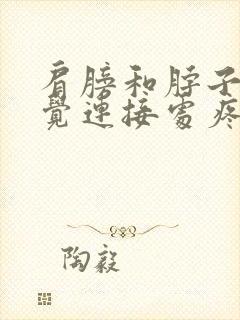 肩膀和脖子
覺連接處疼
陶毅